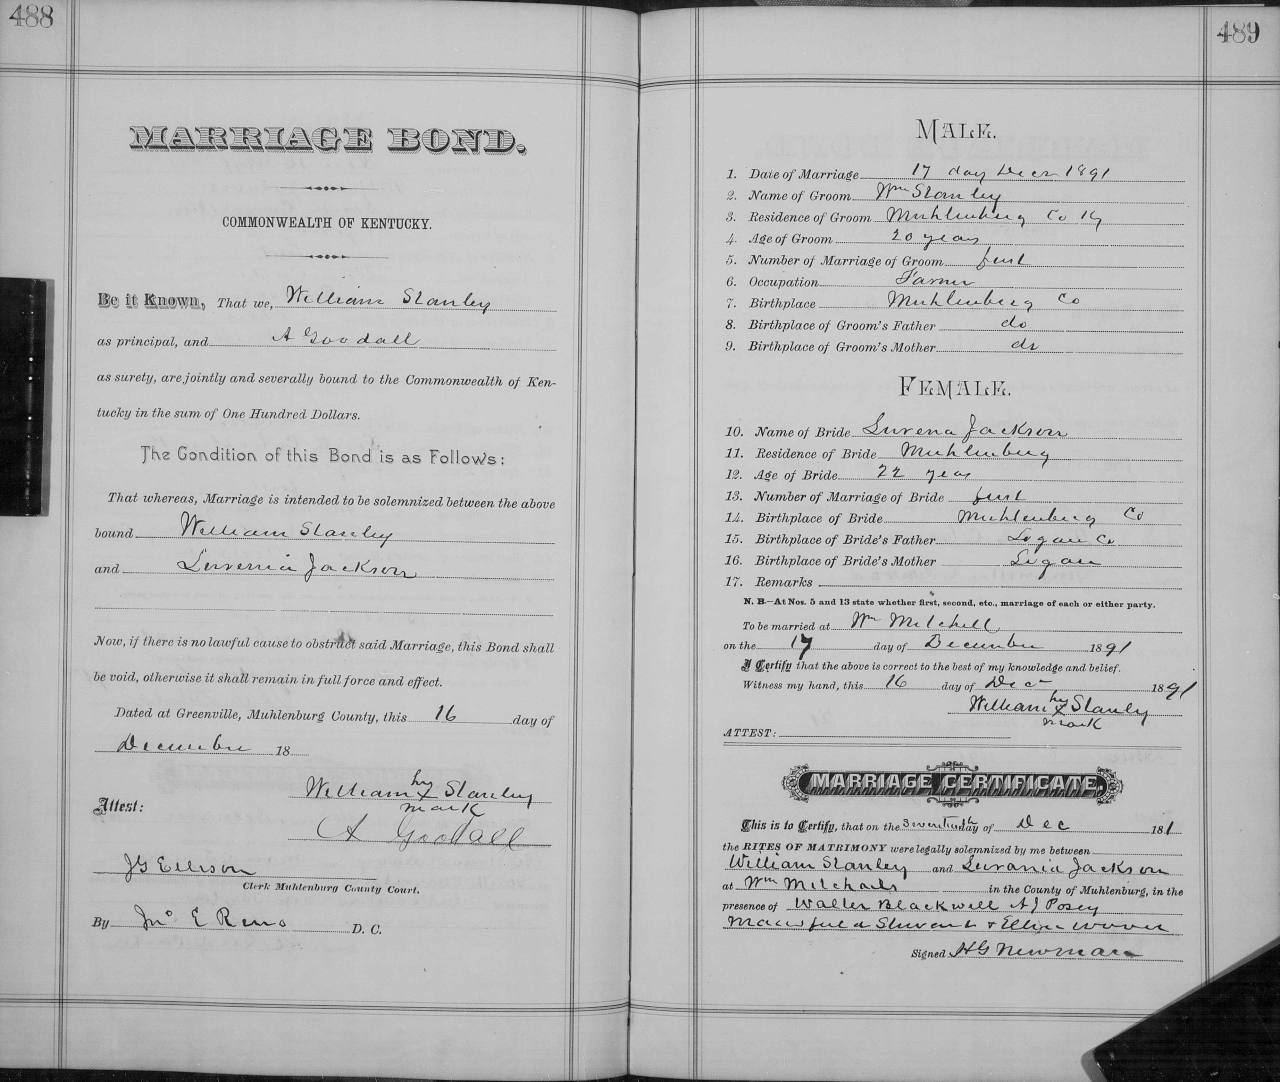 488
MARRIAGE BOND.
COMMONWEALTH OF KENTUCKY.
Be it Known, That we, William Stanley
as principal, and A Goodall
as surety, are jointly and severally bound to the Commonwealth of Ken-
tucky in the sum of One Hundred Dollars.
The Condition of this Bond is as Follows:
That whereas, Marriage is intended to be solemnized between the above
bound William Stanley
and Luvenia Jackson
Now, if there is no lawful cause to obstruct said Marriage, this Bond shall
be void, otherwise it shall remain in full force and effect.
Dated at Greenville, Muhlenburg County, this 16 day of
December 18
William his X mark Stanley
Attest:
A Goodall
JG Ellison
Clerk Muhlenburg County Court.
By Jno E Reno D. C.
489
MALE.
1. Date of Marriage 17 day Decr 1891
2. Name of Groom Wm Stanley
3. Residence of Groom Muhlenburg Co Ky
4. Age of Groom 20 years
5. Number of Marriage of Groom first
6. Occupation Farmer
7. Birthplace Muhlenburg Co
8. Birthplace of Groom's Father do
9. Birthplace of Groom's Mother do
FEMALE.
10. Name of Bride Luvena Jackson
11. Residence of Bride Muhlenburg
12. Age of Bride 22 years
13. Number of Marriage of Bride first
14. Birthplace of Bride Muhlenburg Co
15. Birthplace of Bride's Father Logan Co
16. Birthplace of Bride's Mother Logan
17. Remarks
N. B.—At Nos. 5 and 13 state whether first, second, etc., marriage of each or either party.
To be married at Wm Mitchell
on the 17 day of December 1891
I Certify that the above is correct to the best of my knowledge and belief.
Witness my hand, this 16 day of Dec 1891
William his X mark Stanley
ATTEST:
MARRIAGE CERTIFICATE.
This is to Certify, that on the Seventeenth day of Dec 181
the RITES OF MATRIMONY were legally solemnized by me between
William Stanley and Luvania Jackson
at Wm Mitchals in the County of Muhlenburg, in the
presence of Walter Blackwell A J Posey
& Ellen
Signed HG Newman